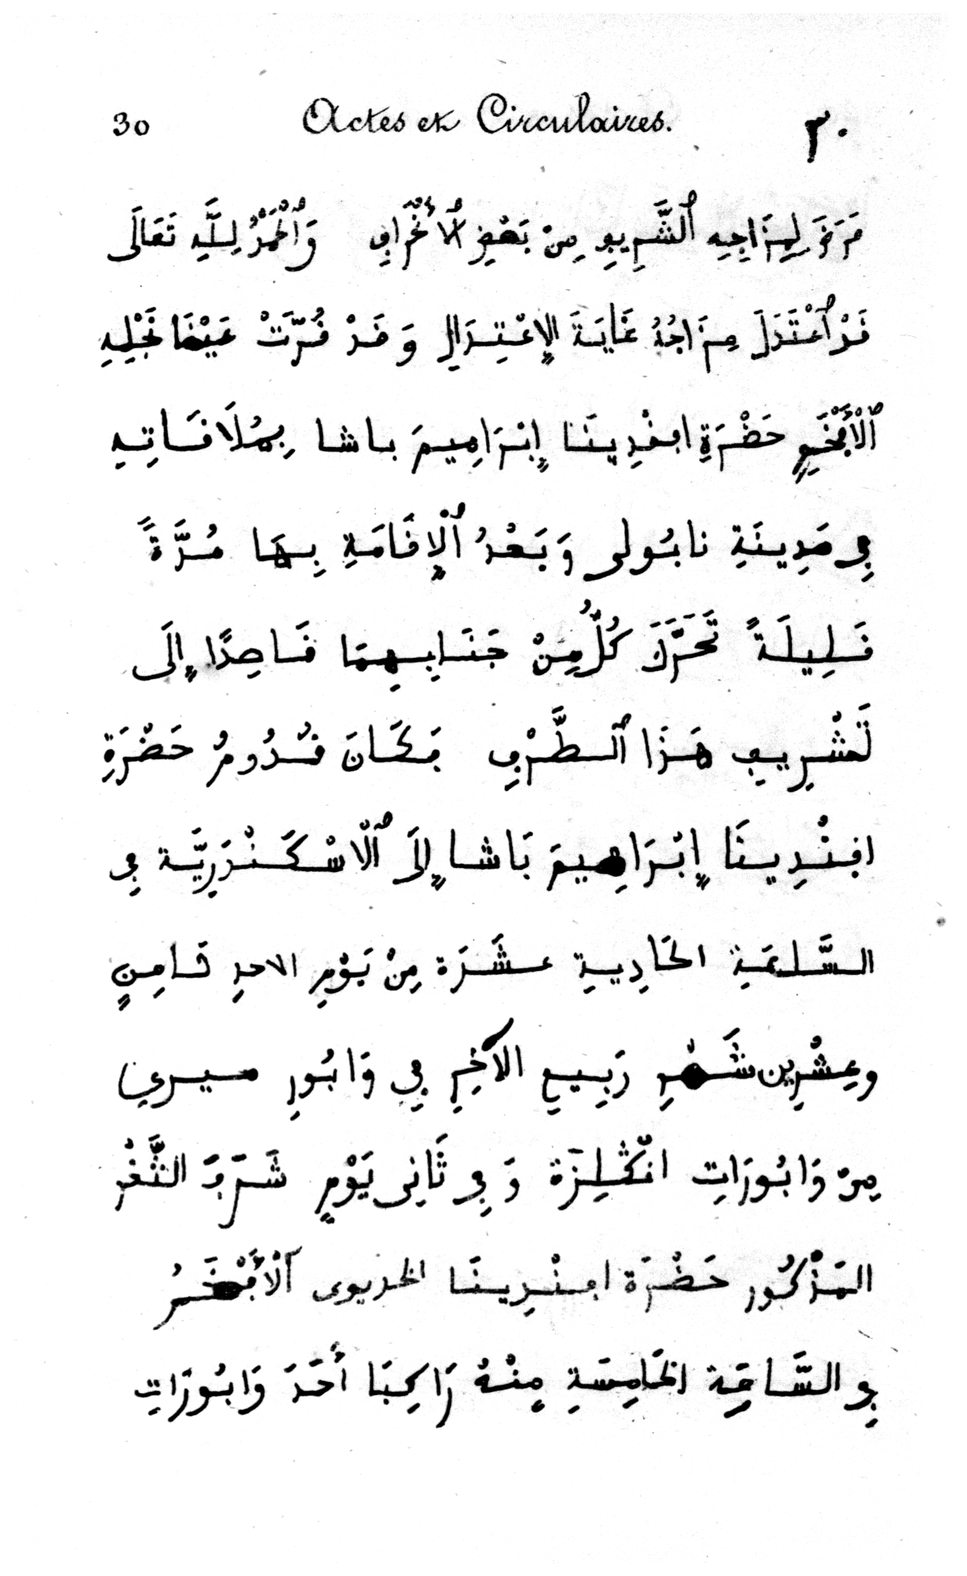 30 Actes et Circulaires. ٣٠
عَرَضَ لِمِزَاجِهِ ٱلشَّرِيفِ مِنْ بَعْضِ ٱلْأَنْحِرَافِ وَٱلْحَمْدُ لِلَّهِ تَعَالَى
قَدْ ٱعْتَدَلَ مِزَاجُهُ غَايَةَ الإِعْتِدَالِ وَقَدْ قُرَّتْ عَيْنَا نَجْلِهِ
ٱلْأَفْخَمِ حَضْرَةِ افَنْدِينَا إِبْرَاهِيمَ باشا بِمُلَاقَاتِهِ
فِي مَدِينَةِ نابُولى وَبَعْدُ ٱلْإِقَامَةِ بِهَا مُدَّةً
قَلِيلَةً تَحَرَّكَ كُلٌّ مِنْ جَنَابِهِمَا قَاصِدًا إِلَى
تَشْرِيفِ هَذَا ٱلطَّرْفِ فَكَانَ قُدُومُ حَضْرَةِ
افَنْدِينَا إِبْرَاهِيمَ بَاشَا إِلَى ٱلْاسْكَنْدَرِيَّة فِي
السَّاعَةِ الحَادِيةِ عشَرَة مِنْ يَوْمِ الاحدِ ثَامِنٍ
وعِشْرِين شَهْرِ رَبِيعِ الآخِرِ فِي وَابُورِ ميري
مِنْ وَابُورَاتِ انْكْلِزَة وَفِي ثَانِى يَوْمٍ شَرَّفَ الثَّغْرَ
المَذْكُور حَضْرَة افَنْدِينَا الخديوى ٱلْأَفْخَمُ
فِي السَّاعَةِ الخَامِسَةِ مِنْهُ رَاكِبَا أَحَدَ وَابُورَاتِ